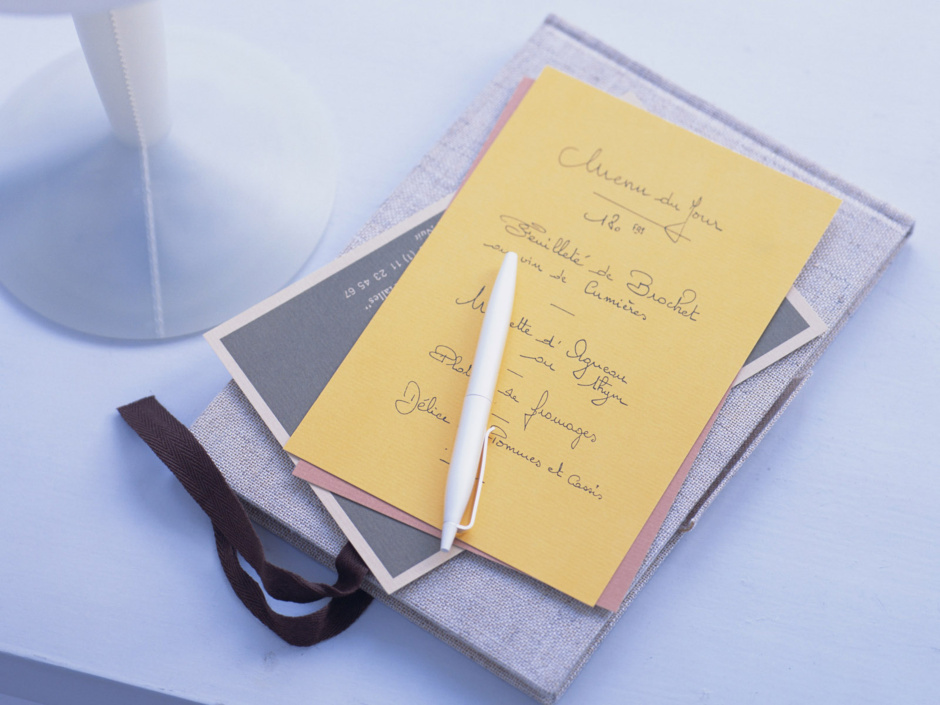 Menu du Jour
180 FF
Feuilleté de Brochet
au vin de Cumières
—
d'Agneau
au thym
—
de fromages
—
Délice Pommes et Cassis
alles"
(1) 11 23 45 67